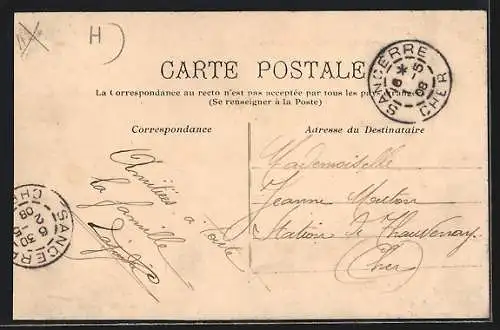 H
CARTE POSTALE
La Correspondance au recto n'est pas acceptée par tous les pays étrangers
(Se renseigner à la Poste)
SANCERRE
CHER
6 - 5
08
Correspondance
Adresse du Destinataire
Amitiés à toute
la famille
Mademoiselle
Jeanne Mouton
Station de Thauvenay
Cher
SANCER
6 - 5
2 30
08